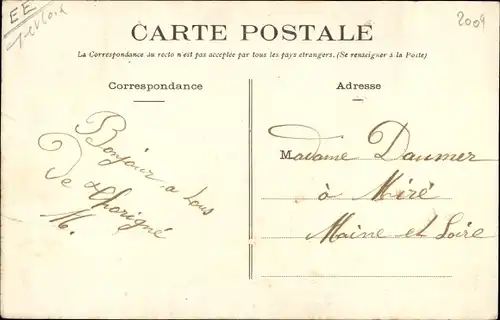 EE
2009
CARTE POSTALE
La Correspondance au recto n'est pas acceptée par tous les pays étrangers. (Se renseigner à la Poste)
Correspondance
Adresse
Bonjour a tous
De Chorigné
M.
Madame Daumer
à Miré
Maine et Loire